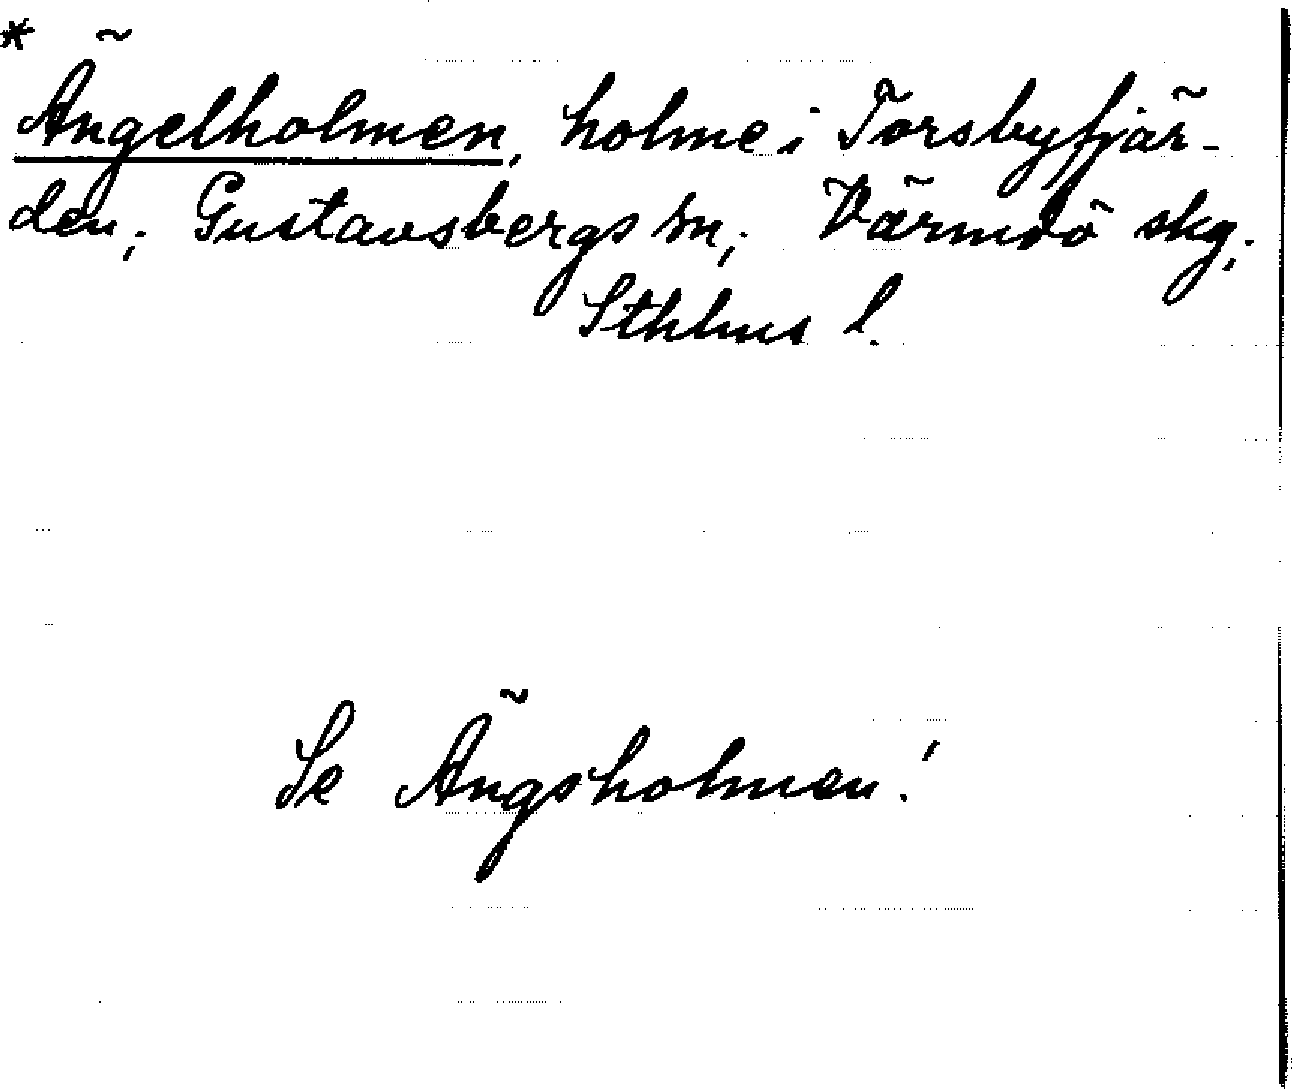 * Ängelholmen, holme i Torsbyfjär-
den; Gustavsbergs sn; Värmdö skg;
Sthlms l.
Se Ängsholmen!